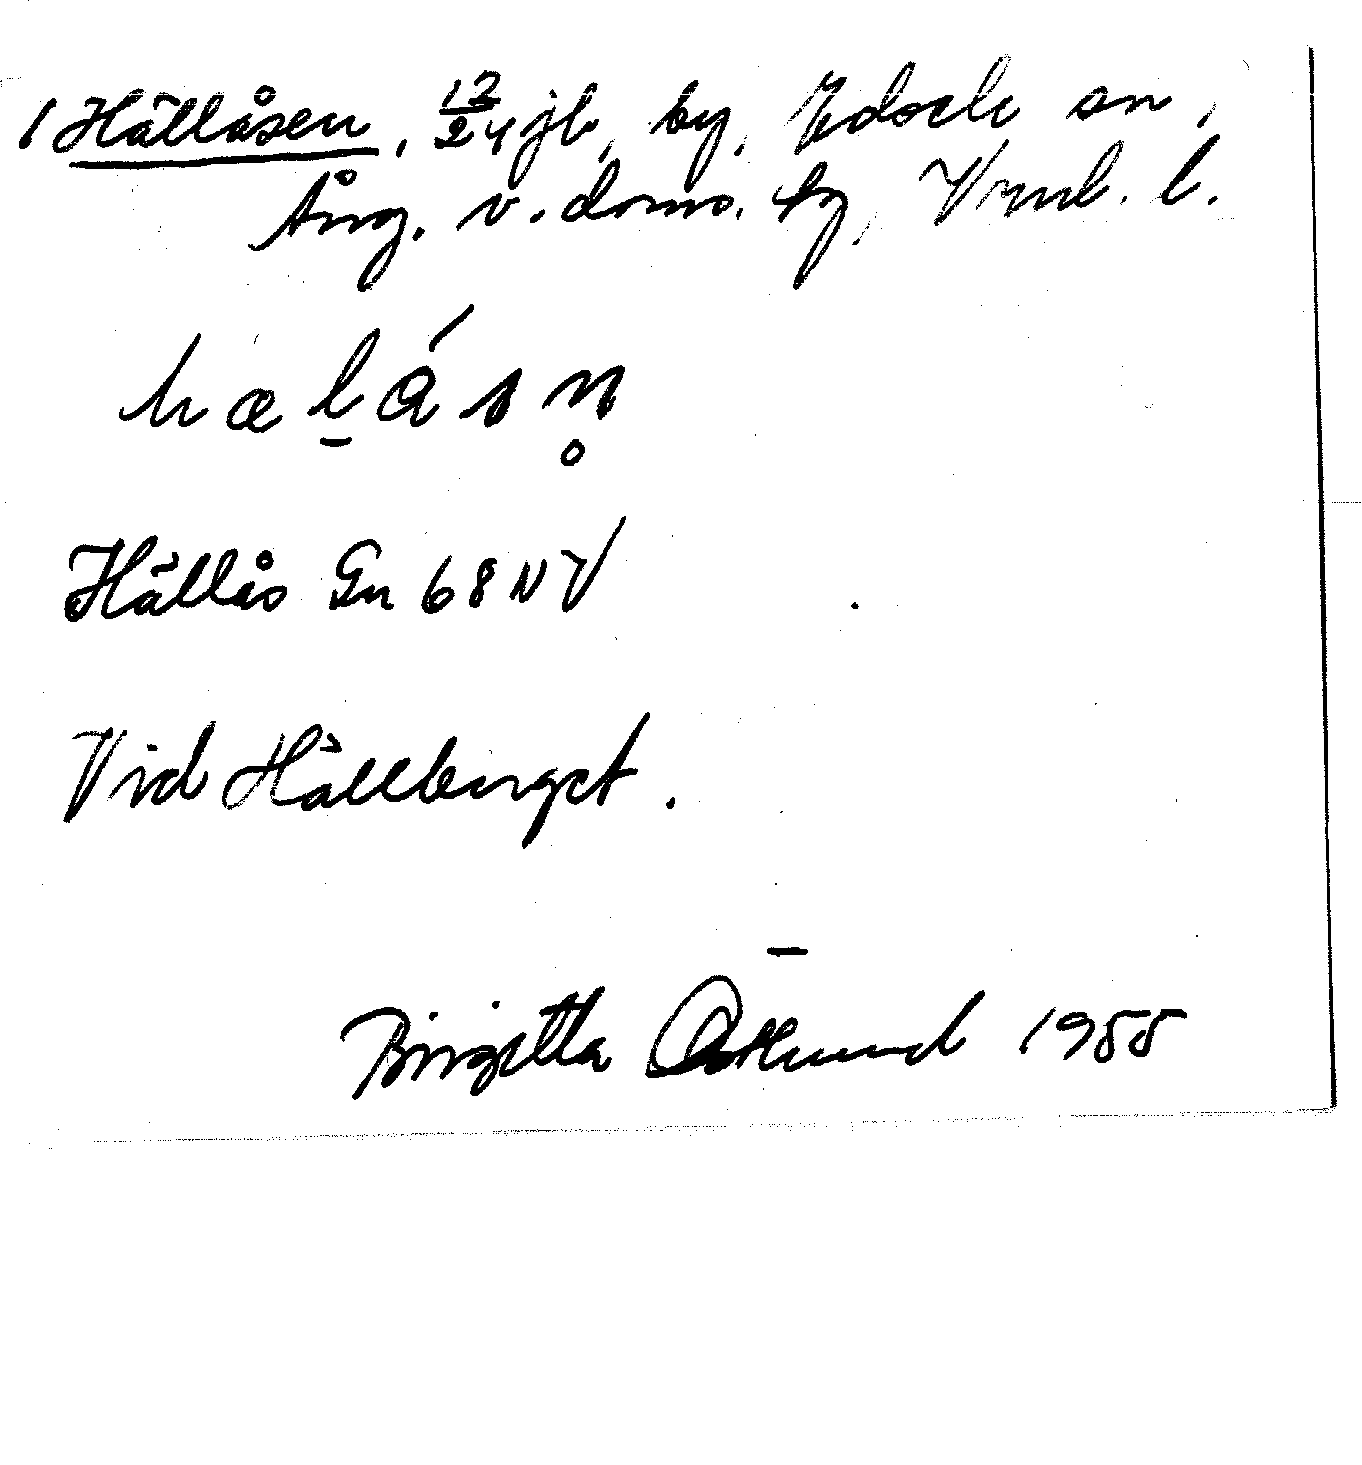 1 Hällåsen, 12/24 jb, by, Edsele sn,
Ång. v. doms. bg, Vrnl. l.
hæl̠ásn̥
Hällås Gn 68 NV
Vid Hällberget.
Birgitta Östlund 1955